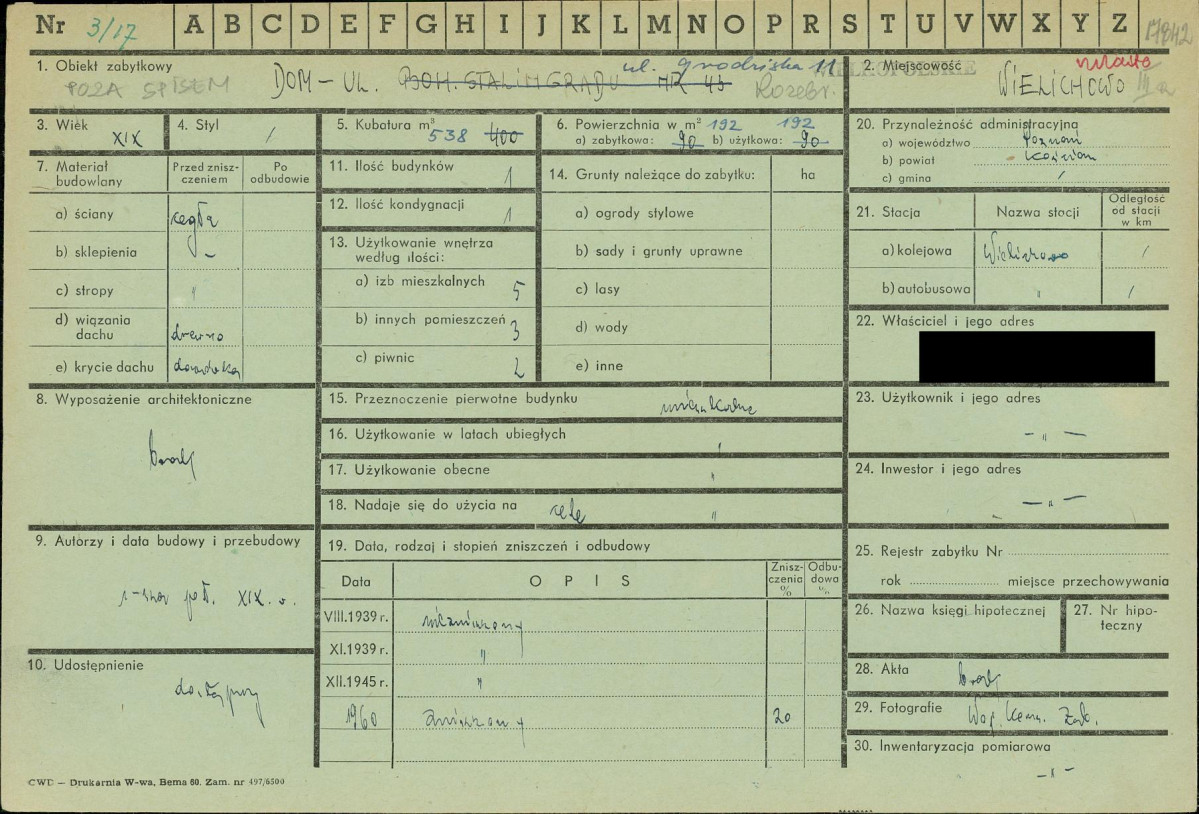 Nr 3/17 A B C D E F G H I J K L M N O P R S T U V W X Y Z 17842
1. Obiekt zabytkowy DOM - UL. BOH. STALINGRADU NR 43 ul. Grodziska 11
POZA SPISEM Rozebr. WIELKOPOLSKIE
2. Miejscowość miasto
WIELICHOWO III a
3. Wiek XIX
4. Styl /
5. Kubatura m³ 538 400
6. Powierzchnia w m² 192 192
a) zabytkowa: 90 b) użytkowa: 90
20. Przynależność administracyjna
a) województwo Poznań
b) powiat Kościan
c) gmina /
7. Materiał budowlany
Przed znisz-czeniem
Po odbudowie
a) ściany cegła
b) sklepienia –
c) stropy "
d) wiązania dachu drewno
e) krycie dachu dachówka
11. Ilość budynków 1
12. Ilość kondygnacji 1
13. Użytkowanie wnętrza według ilości:
a) izb mieszkalnych 5
b) innych pomieszczeń 3
c) piwnic 2
14. Grunty należące do zabytku: ha
a) ogrody stylowe
b) sady i grunty uprawne
c) lasy
d) wody
e) inne
21. Stacja
Nazwa stacji
Odległość od stacji w km
a) kolejowa Wielichowo /
b) autobusowa " /
22. Właściciel i jego adres
8. Wyposażenie architektoniczne
brak
15. Przeznaczenie pierwotne budynku mieszkalne
16. Użytkowanie w latach ubiegłych "
17. Użytkowanie obecne "
18. Nadaje się do użycia na cele "
23. Użytkownik i jego adres
– " –
24. Inwestor i jego adres
– " –
9. Autorzy i data budowy i przebudowy
1-sza poł. XIX w.
19. Data, rodzaj i stopień zniszczeń i odbudowy
Data
OPIS
Znisz-czenia %
Odbu-dowa %
VIII.1939 r. niezniszczony
XI.1939 r. "
XII.1945 r. "
1960 zniszczony 20
25. Rejestr zabytku Nr
rok miejsce przechowywania
26. Nazwa księgi hipotecznej
27. Nr hipo-teczny
10. Udostępnienie
dostępny
28. Akta brak
29. Fotografie Woj. Kons. Zab.
30. Inwentaryzacja pomiarowa
– " –
CWD — Drukarnia W-wa, Bema 60. Zam. nr 497/6500